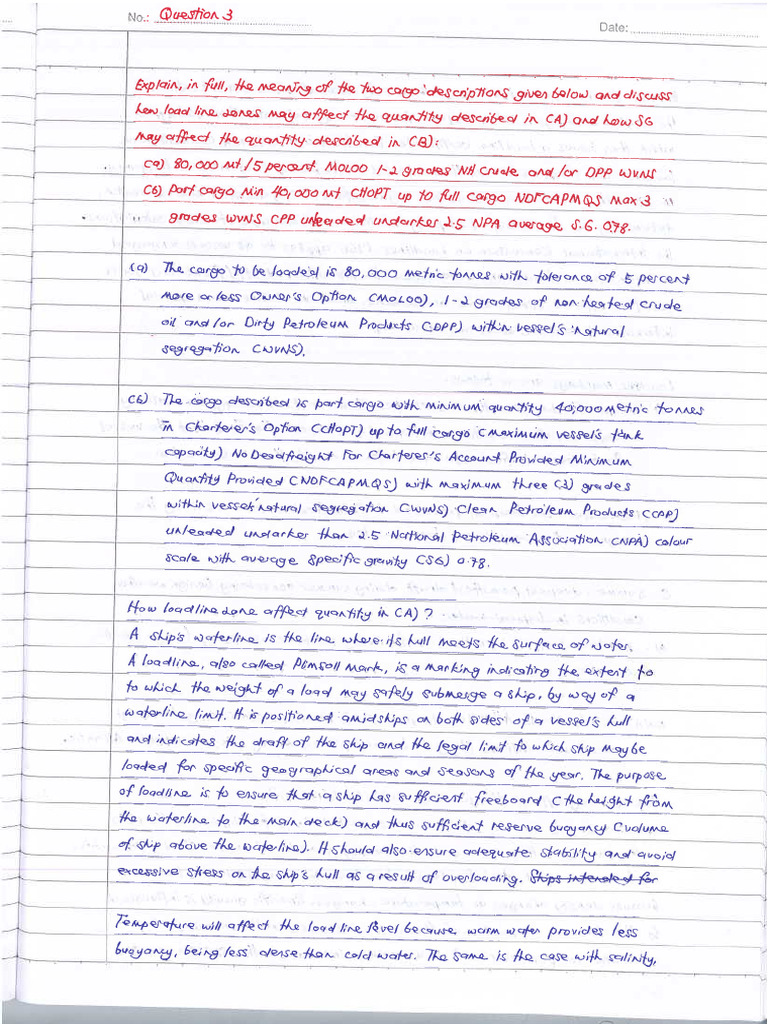 No.: Question 3
Date:
Explain, in full, the meaning of the two cargo descriptions given below and discuss
how load line zones may affect the quantity described in (A) and how SG
may affect the quantity described in (B):
(a) 80,000 mt/5 percent MOLOO 1-2 grades NH Crude and/or DPP WVNS
(b) Part cargo Min 40,000 mt CHOPT up to full cargo NDFCAPMQS Max 3
grades WVNS CPP unleaded undarker 2.5 NPA average S.G. 0.78.
(a) The cargo to be loaded is 80,000 metric tonnes with tolerance of 5 percent
More or less Owner's Option (MOLOO), 1-2 grades of non heated crude
oil and/or Dirty Petroleum Products (DPP) within vessel's natural
segregation (WVNS).
(b) The cargo described is part cargo with minimum quantity 40,000 metric tonnes
in Charterer's Option (CHOPT) up to full cargo (maximum vessel's tank
capacity) No Deadfreight For Charteres's Account Provided Minimum
Quantity Provided (NDFCAPMQS) with maximum three (3) grades
within vessels' natural segregation (WVNS) Clean Petroleum Products (CPP)
unleaded undarker than 2.5 National Petroleum Association (NPA) colour
scale with average specific gravity (SG) 0.78.
How loadline zone affect quantity in (A)?
A ship's waterline is the line where its hull meets the surface of water.
A loadline, also called Plimsoll Mark, is a marking indicating the extent to
to which the weight of a load may safely submerge a ship, by way of a
waterline limit. It is positioned amidships on both sides of a vessel's hull
and indicates the draft of the ship and the legal limit to which ship maybe
loaded for specific geographical areas and seasons of the year. The purpose
of loadline is to ensure that a ship has sufficient freeboard (the height from
the waterline to the main deck) and thus sufficient reserve buoyancy (volume
of ship above the waterline). It should also ensure adequate stability and avoid
excessive stress on the ship's hull as a result of overloading. Ships intended for
Temperature will affect the load line level because warm water provides less
buoyancy, being less dense than cold water. The same is the case with salinity,